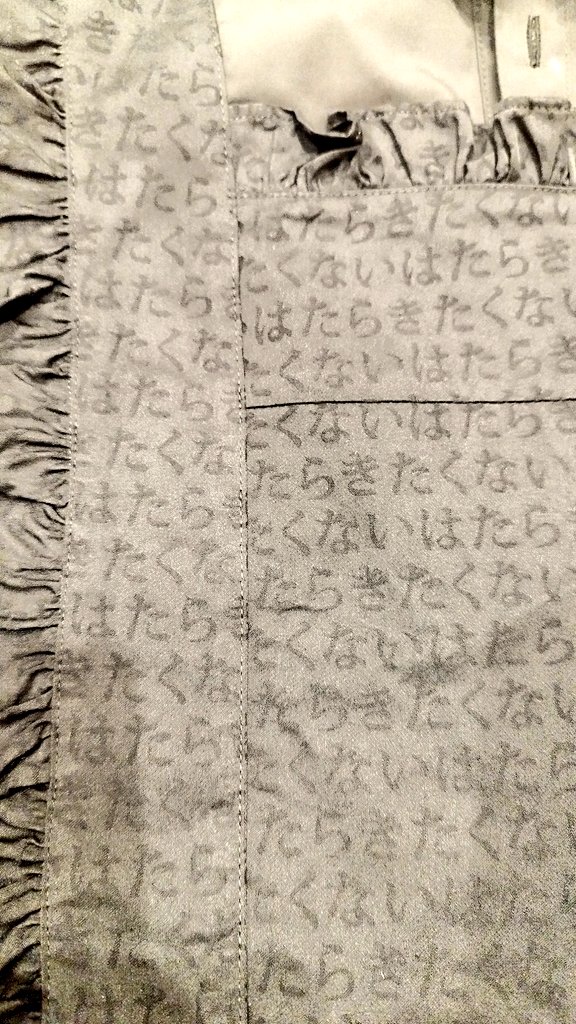 き
たら
きたくな
はたら
きたくな
はたら
たくな
はたら
たくな
はたら
たくな
はたら
きたくな
はたら
たく
はたら
はたらきたくない
たくないはたらき
はたらきたくない
たくないはたらき
たくないはたらき
たらきたくない
たくないはたら
たらきたくない
たくないはたら
たらきたくない
たくないはたら
たらきたくな
たくないはたら
たらきたくな